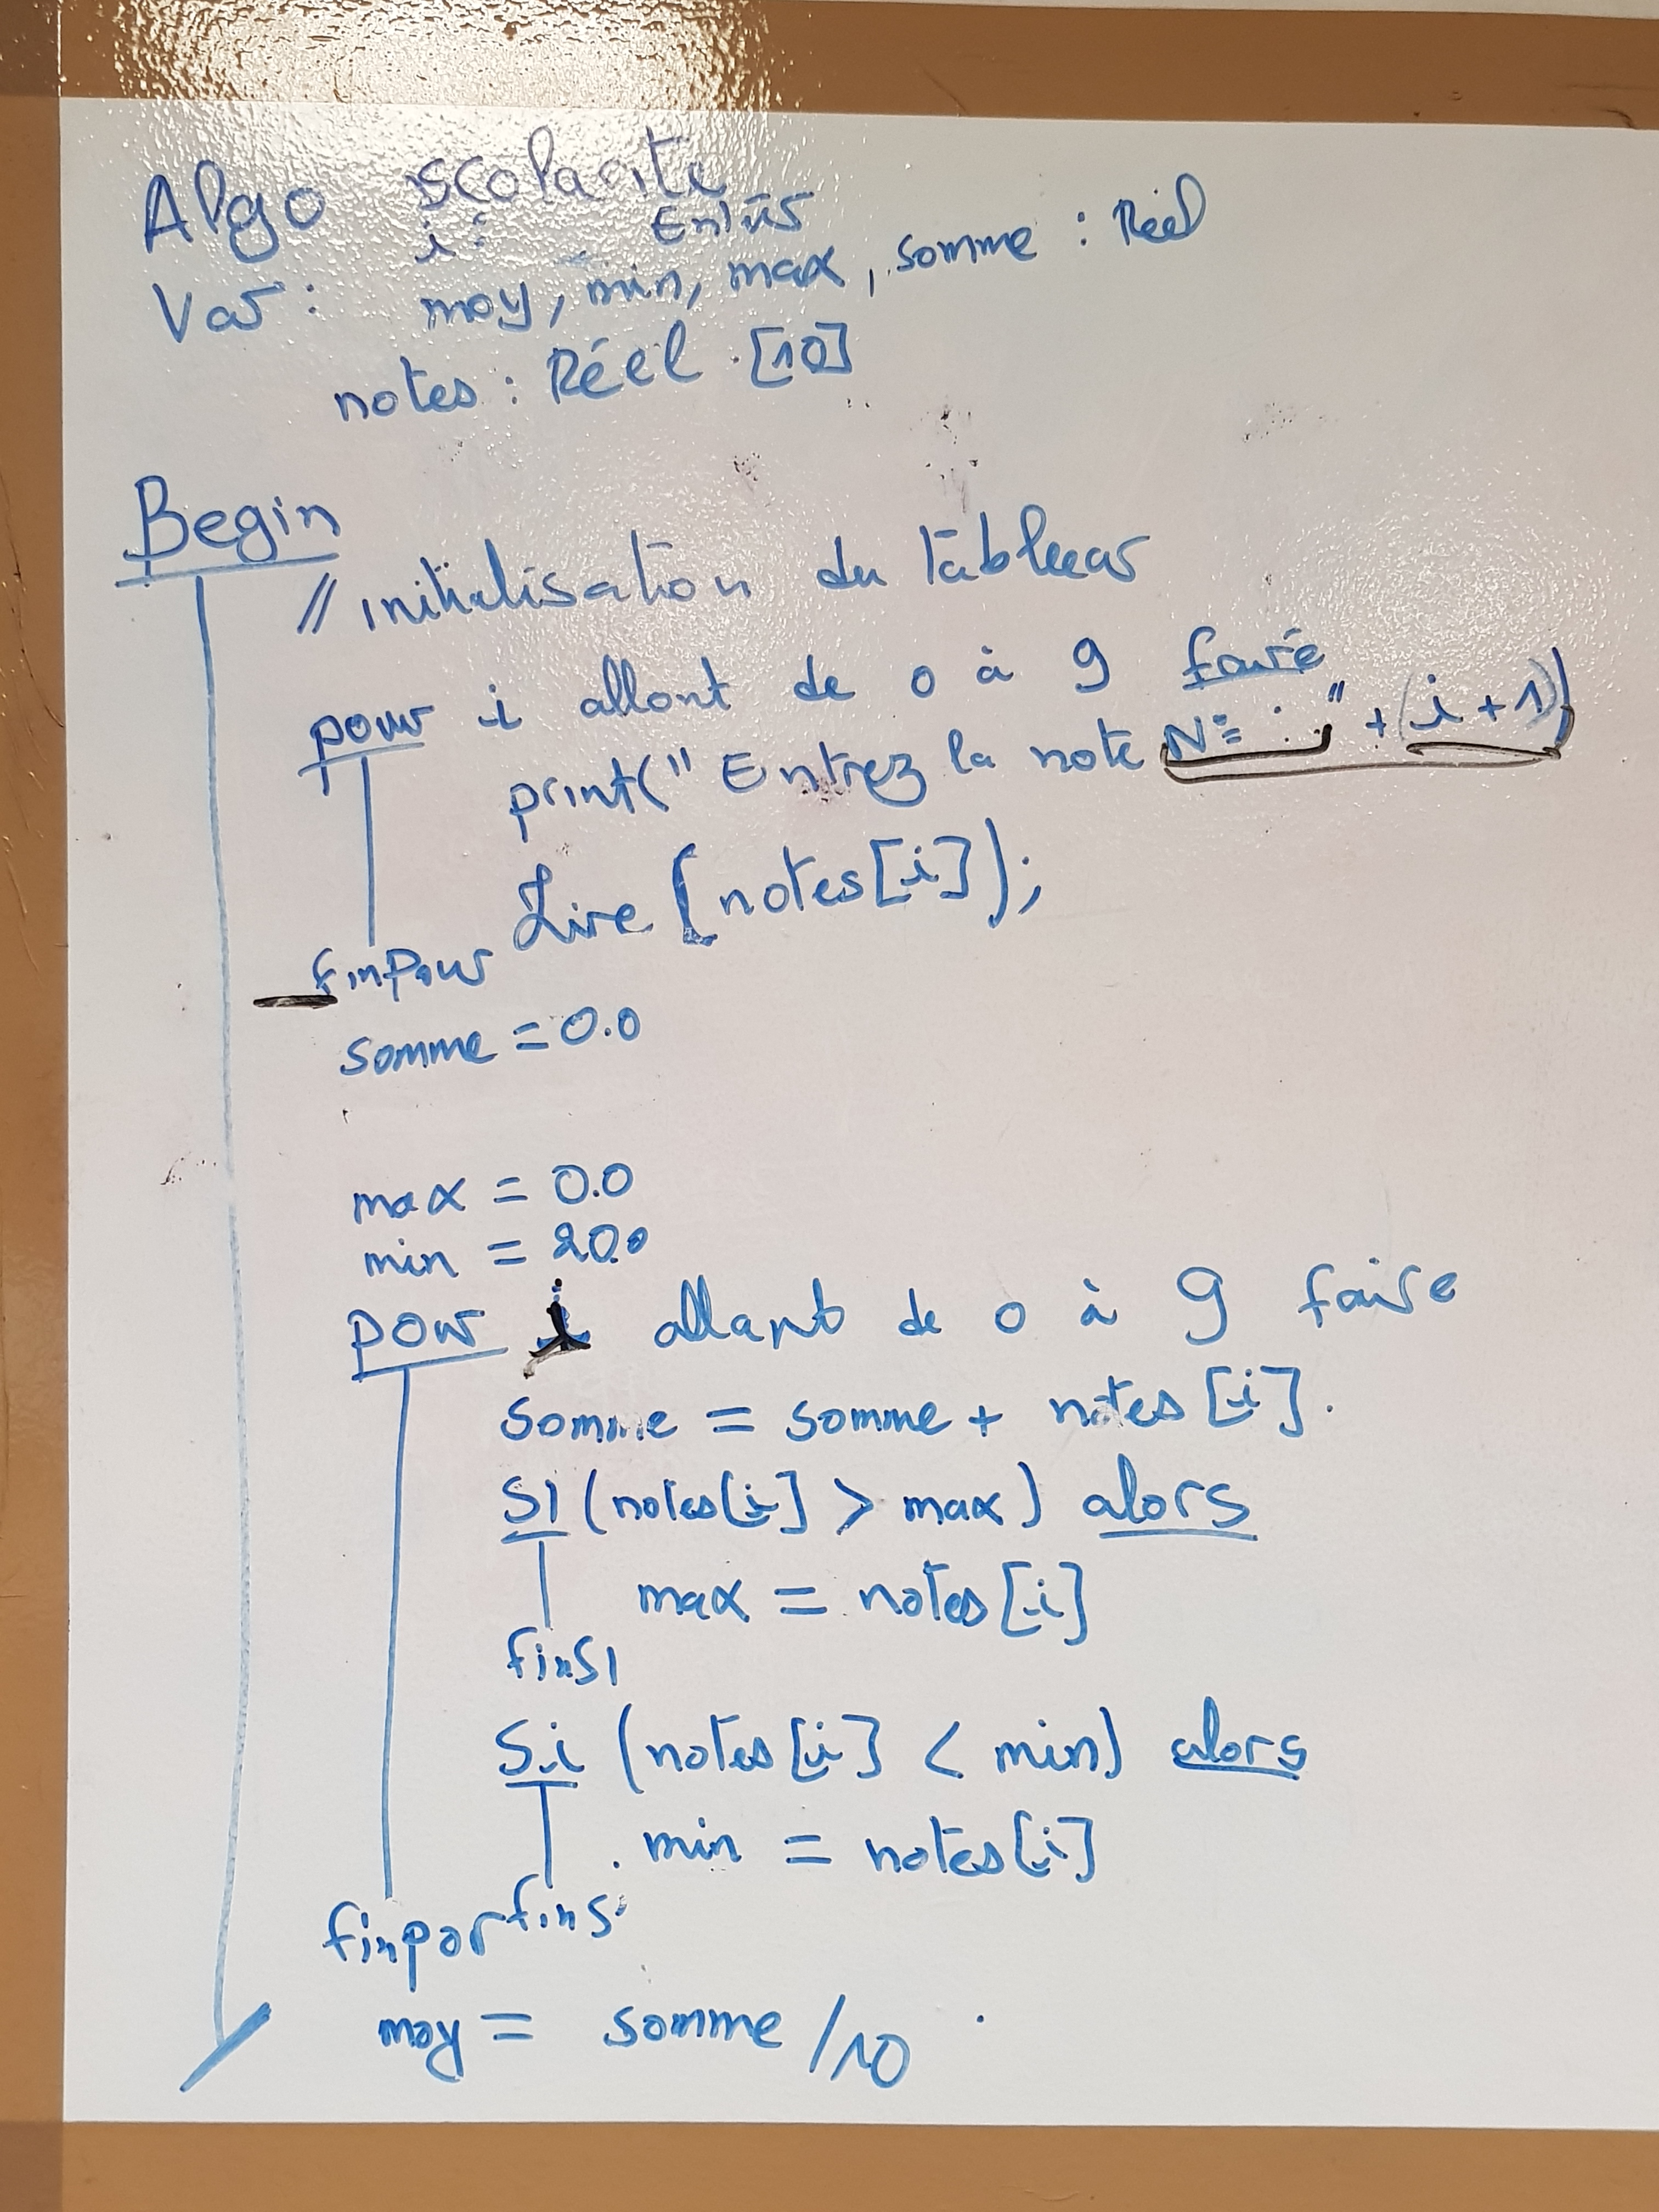 Algo scolarite
i : Entier
Var : moy, min, max, somme : Réel
notes : Réel [10]
Begin
// initialisation du tableau
pour i allant de 0 à 9 faire
print(" Entrez la note N° : " + (i + 1))
Lire (notes[i]);
finPour
somme = 0.0
max = 0.0
min = 20.0
pour i allant de 0 à 9 faire
somme = somme + notes [i].
SI (notes[i] > max) alors
max = notes [i]
finSI
Si (notes [i] < min) alors
min = notes[i]
finsi
finpour
moy = somme /10